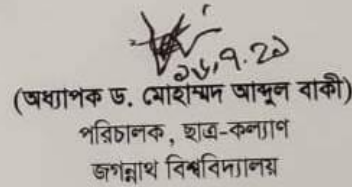 (অধ্যাপক ড. মোহাম্মদ আব্দুল বাকী)
পরিচালক, ছাত্র-কল্যাণ
জগন্নাথ বিশ্ববিদ্যালয়